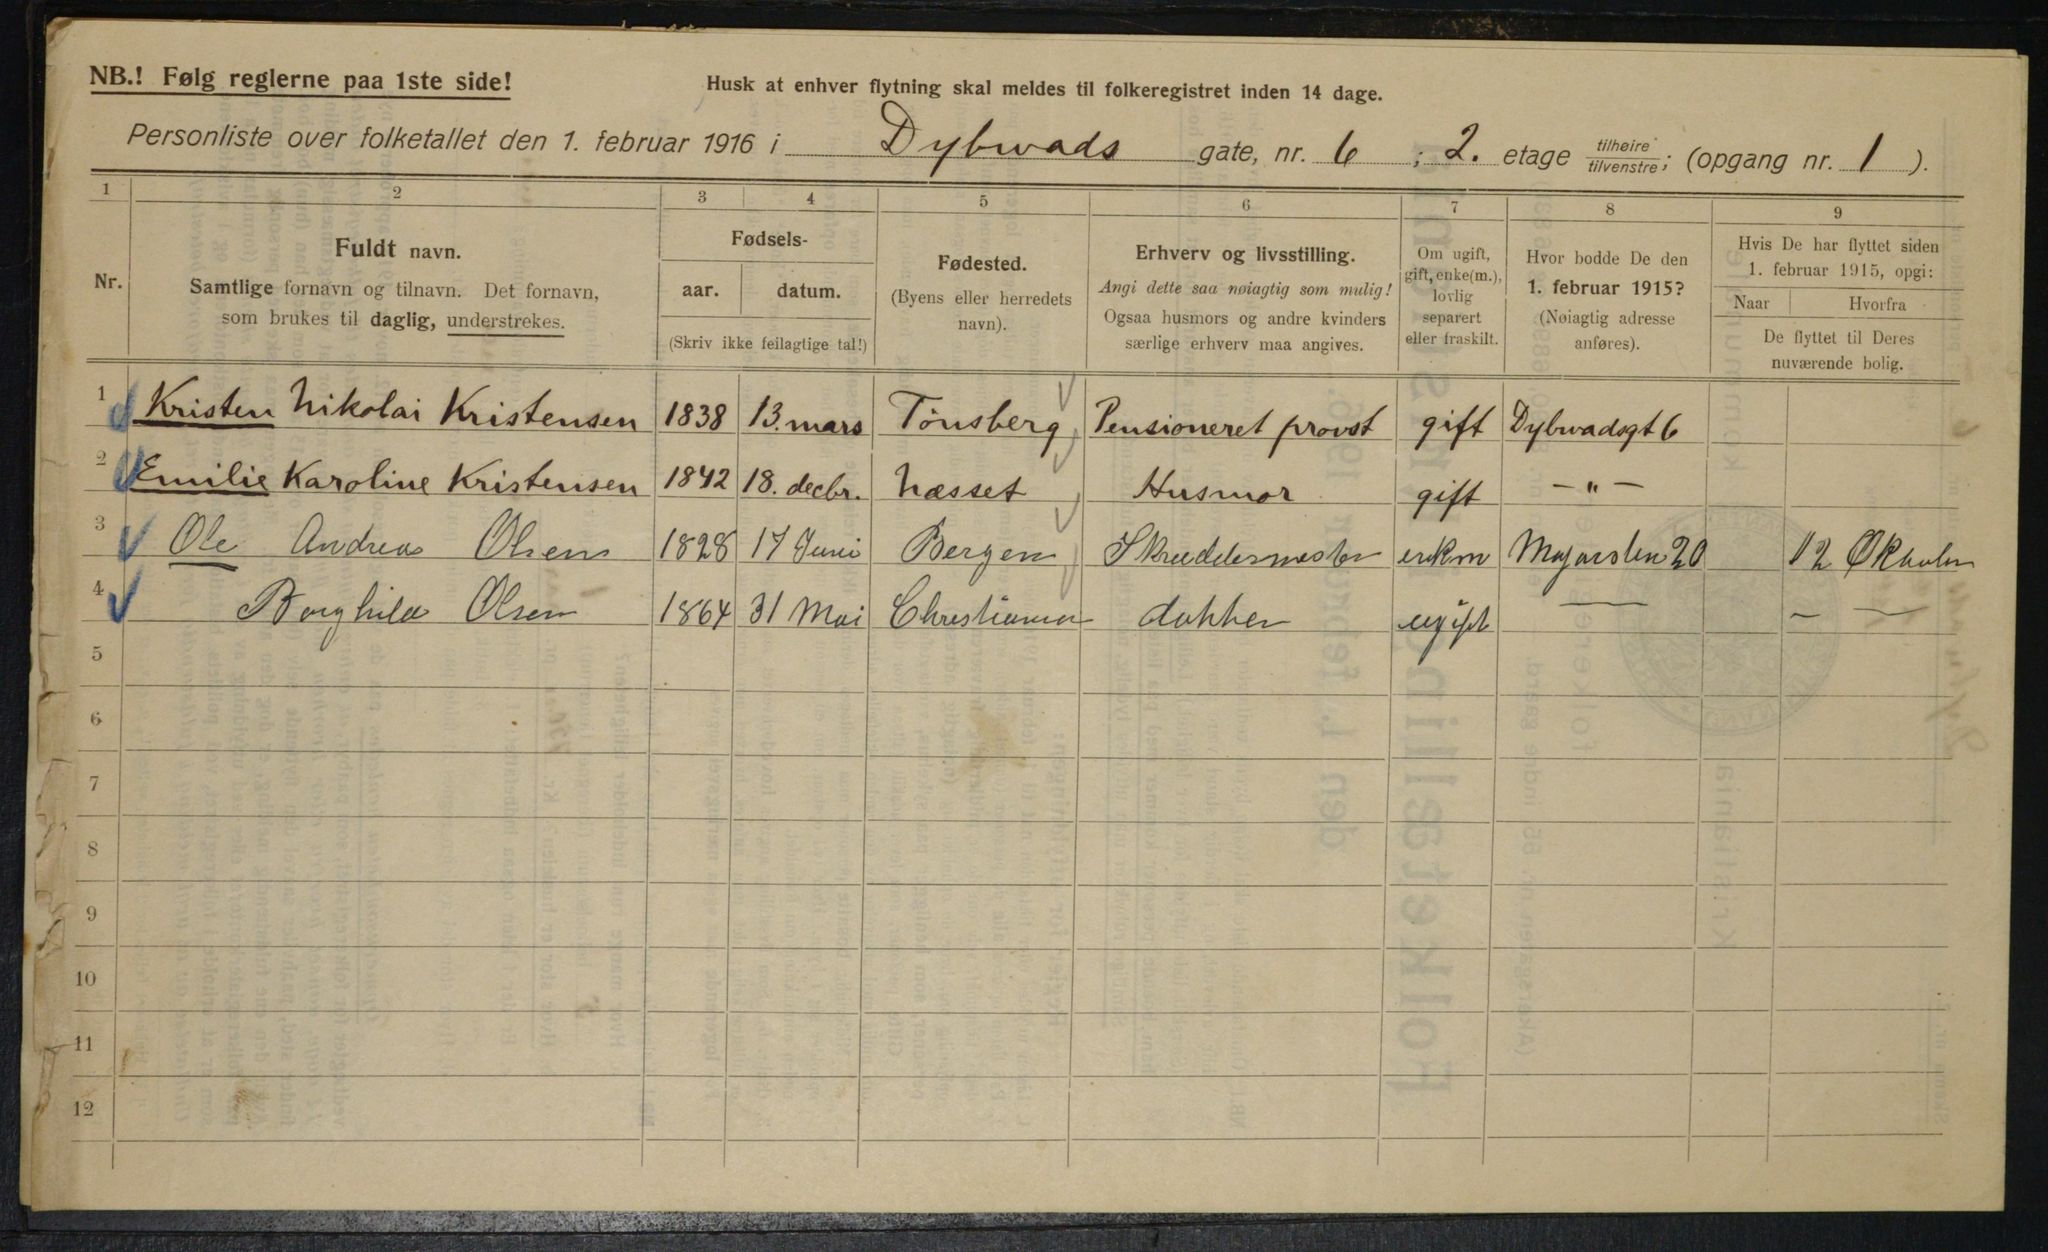 NB.! Følg reglerne paa 1ste side!
Husk at enhver flytning skal meldes til folkeregistret inden 14 dage.
Personliste over folketallet den 1. februar 1916 i Dybwads gate, nr. 6 ; 2. etage tilhøire/tilvenstre; (opgang nr. 1 ).
1 2 3 4 5 6 7 8 9
Nr.
Fuldt navn.
Samtlige fornavn og tilnavn. Det fornavn,
som brukes til daglig, understrekes.
Fødsels-
aar. datum.
(Skriv ikke feilagtige tal!)
Fødested.
(Byens eller herredets
navn).
Erhverv og livsstilling.
Angi dette saa nøiagtig som mulig!
Ogsaa husmors og andre kvinders
særlige erhverv maa angives.
Om ugift,
gift, enke(m.),
lovlig
separert
eller fraskilt.
Hvor bodde De den
1. februar 1915?
(Nøiagtig adresse
anføres).
Hvis De har flyttet siden
1. februar 1915, opgi:
Naar Hvorfra
De flyttet til Deres
nuværende bolig.
1 Kristen Nikolai Kristensen 1838 13. mars Tønsberg Pensioneret provst gift Dybwadsgt 6
2 Emilie Karoline Kristensen 1842 18. decbr. Næsset Husmor gift - " -
3 Ole Andreas Olsen 1828 17 Juni Bergen Skreddermester enkm 20 12
4 Borghild Olsen 1864 31 Mai Christiania datter ugift — - —
5
6
7
8
9
10
11
12